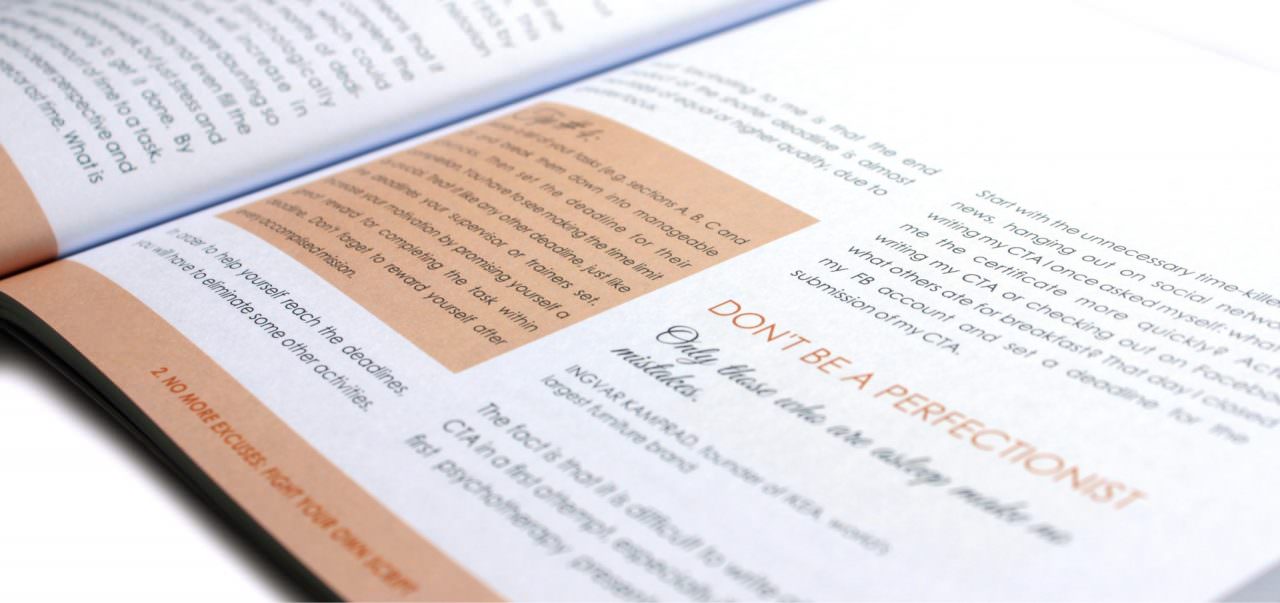 complete the
, which could
months of dead-
psychologically
will increase in
more daunting so
may not even fill the
but just stress and
to get it done. By
amount of time to a task,
perspective and
time. What is
to me is that the end
of the shorter deadline is almost
of equal or higher quality, due to
focus.
Tip #4:
of your tasks (e.g. sections A, B, C and
and break them down into manageable
Then set the deadline for their
You have to see making the time limit
Treat it like any other deadline, just like
deadlines your supervisor or trainers set.
your motivation by promising yourself a
reward for completing the task within
deadline. Don't forget to reward yourself after
every accomplished mission.
In order to help yourself reach the deadlines,
you will have to eliminate some other activities.
2. NO MORE EXCUSES: FIGHT YOUR OWN SCRIPT
Start with the unnecessary time-kille
news, hanging out on social netwo
writing my CTA once asked myself: what
me the certificate more quickly?
writing my CTA or checking out on Facebo
what others ate for breakfast? That day I closed
my FB account and set a deadline for the
submission of my CTA.
DON'T BE A PERFECTIONIST
Only those who are asleep make no
mistakes.
INGVAR KAMPRAD, founder of IKEA, world's
largest furniture brand
The fact is that it is difficult to write
CTA in a first attempt, especially
first psychotherapy